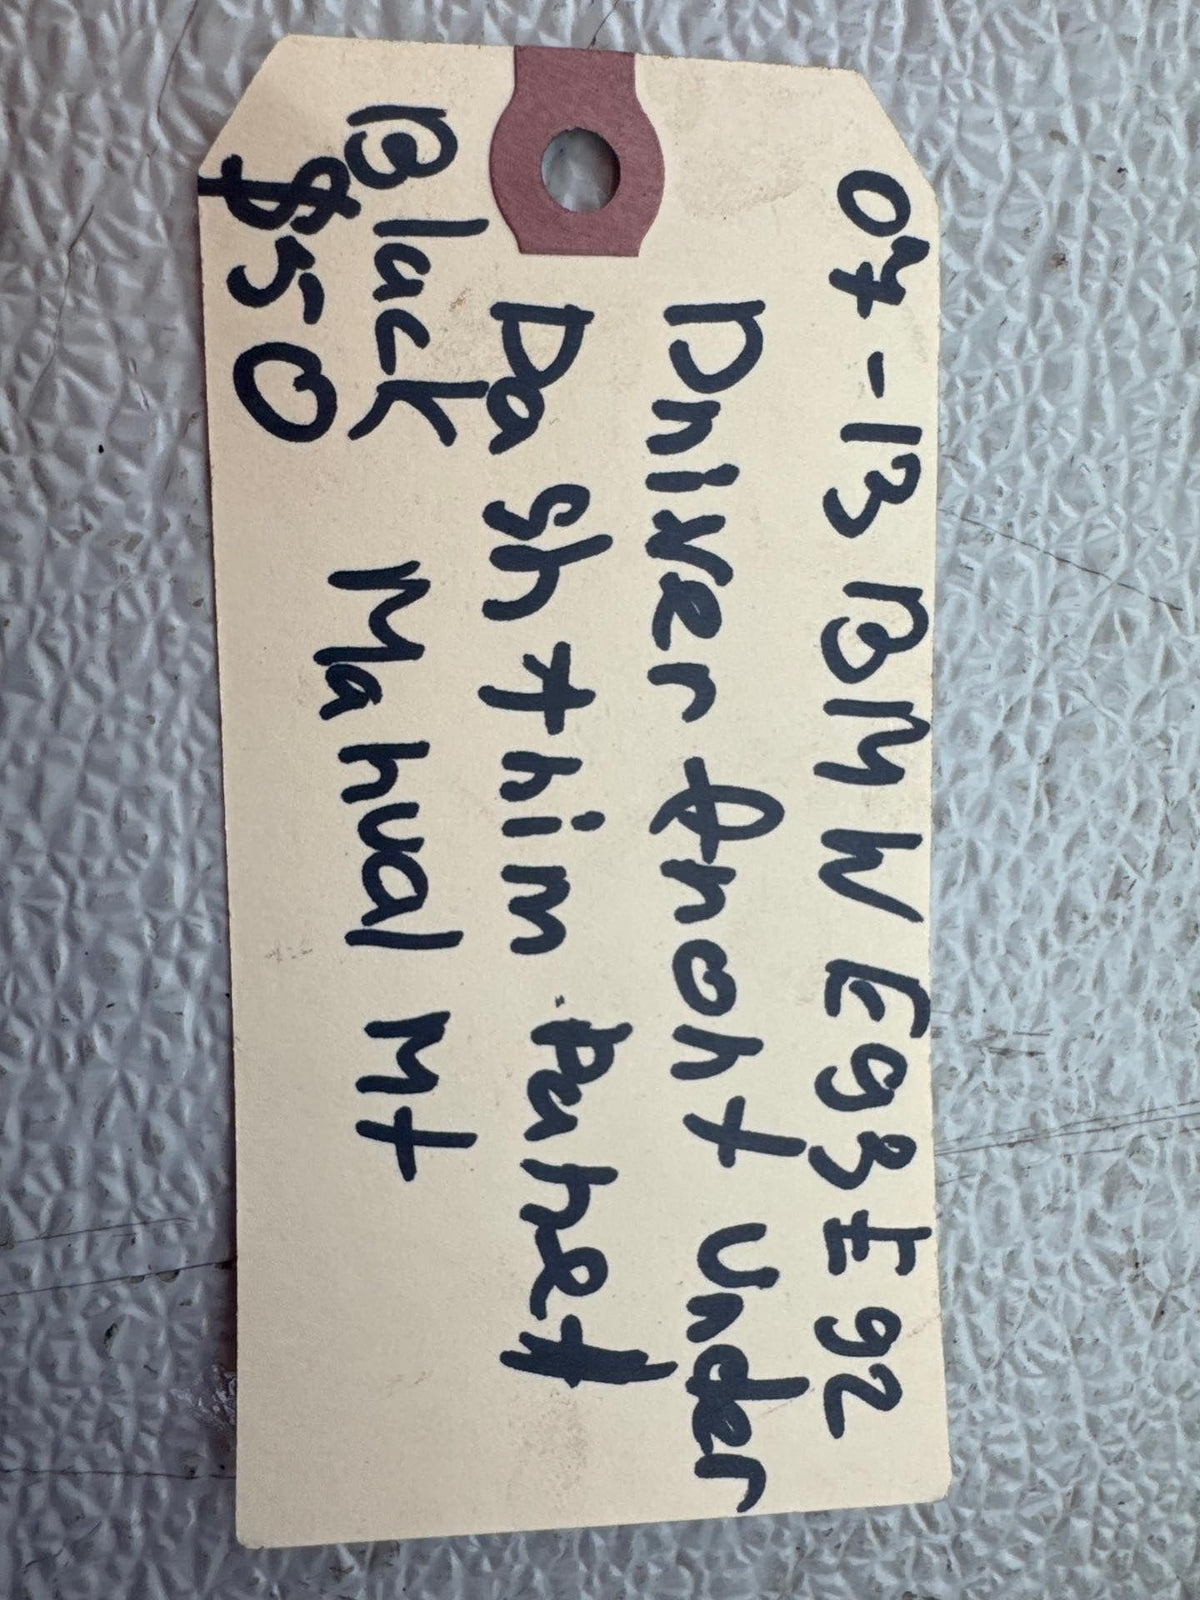 07-13 BMW E93 E92
Driver front Under
Dash trim Panel
Black Manual Mt
$50